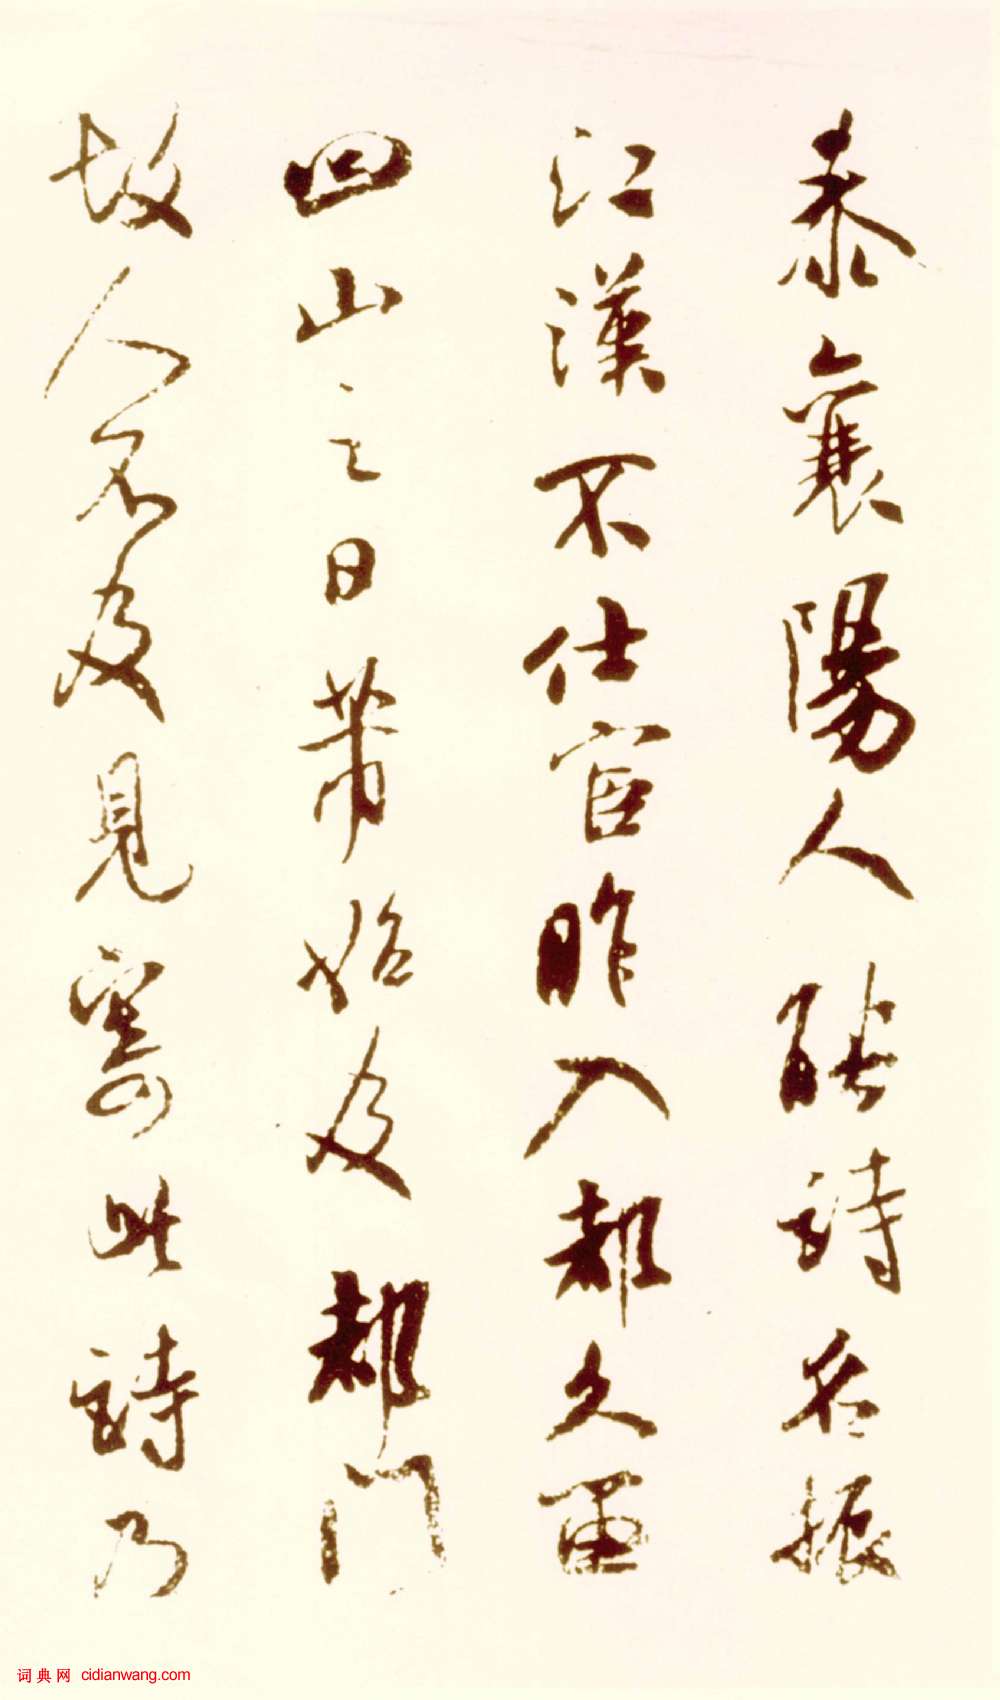 泰襄陽人能詩名振
江漢不仕宦昨入都久留
四山之日茀始及都門
故人不及見寄此詩乃
词典网 cidianwang.com